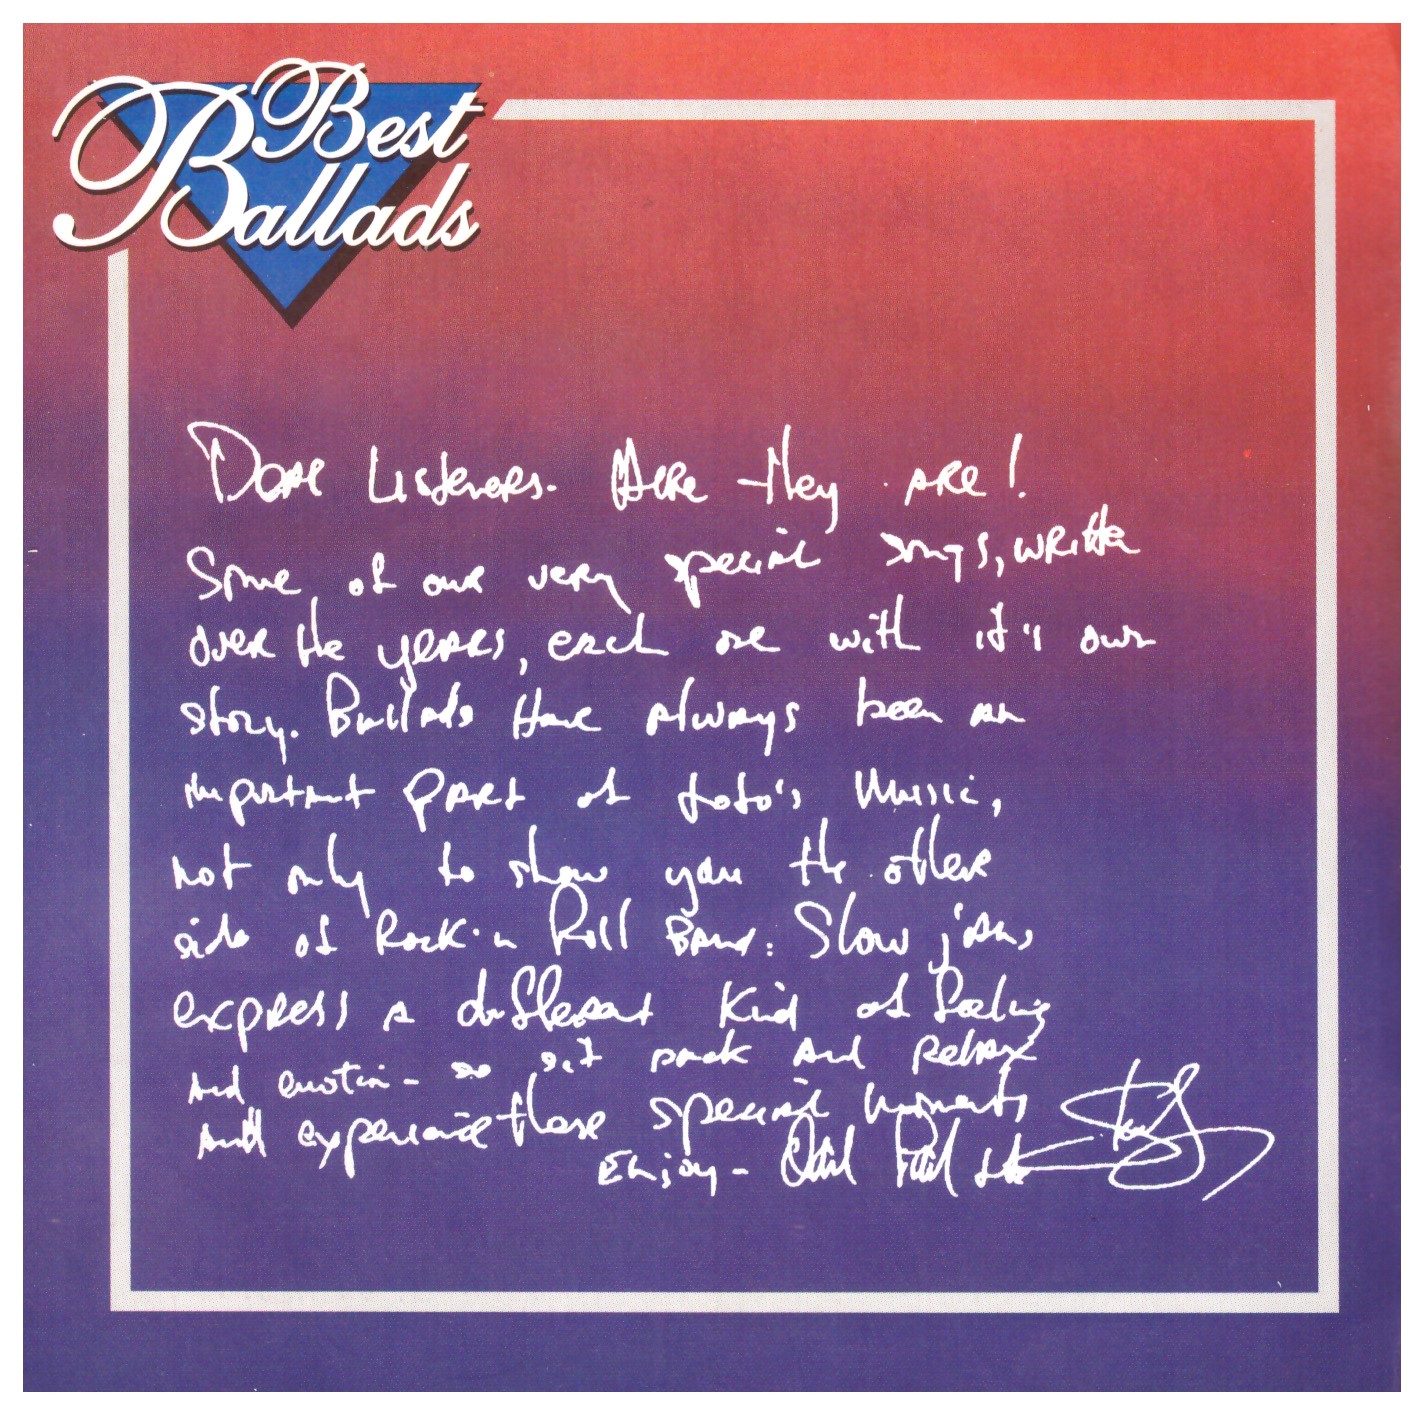 Best
Ballads
Dear Listeners. Here they are!
Some of our very special songs, written
over the years, each one with it's own
story. Ballads Have always been an
important part of toto's Music,
not only to show you the other
side of Rock'n Roll Band: Slow jams
express a different kind of feeling
and emotion - so sit back and Relax
and experience these special moments
Enjoy -